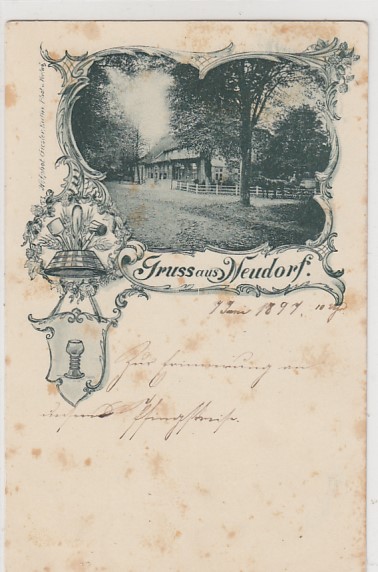 Gruss aus Neudorf.
7 Juni 1897.
Zur Erinnerung an
unsere Pfingstreise.